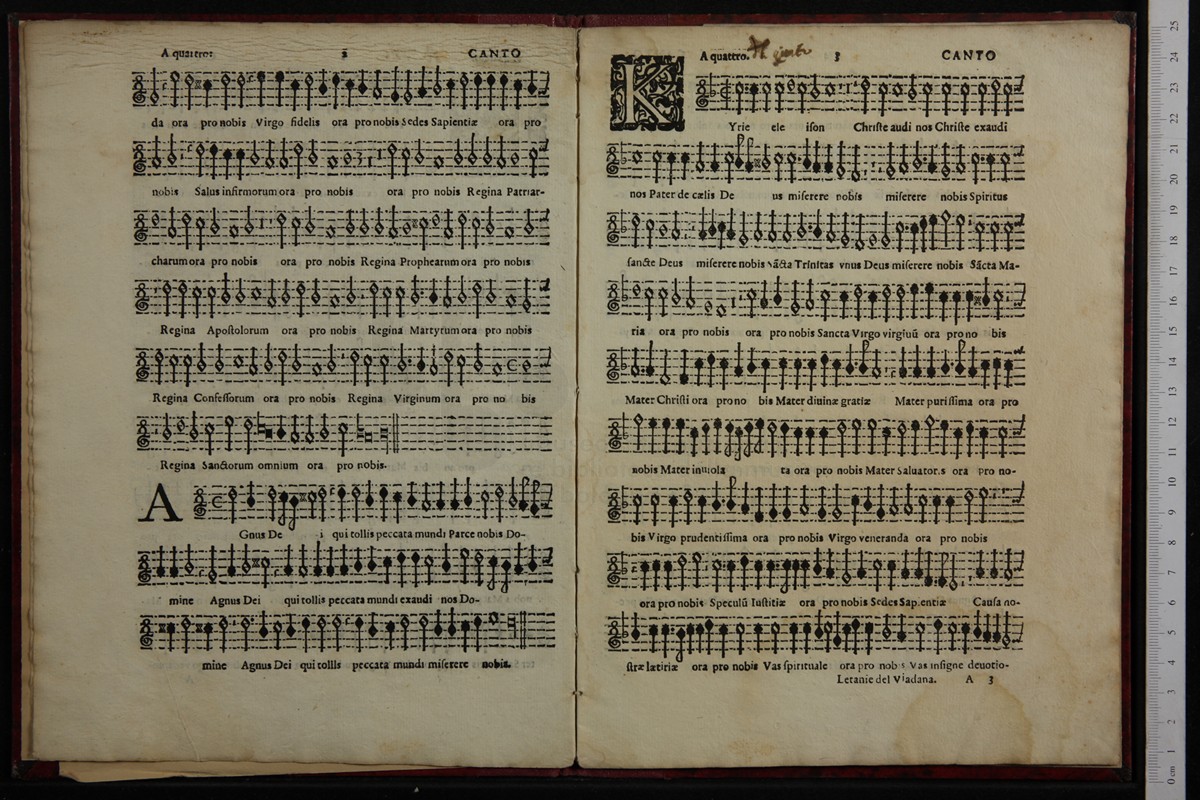 A quattro: 2 CANTO
da ora pro nobis Virgo fidelis ora pro nobis Sedes Sapientiæ ora pro
nobis Salus infirmorum ora pro nobis ora pro nobis Regina Patriar-
charum ora pro nobis ora pro nobis Regina Prophetarum ora pro nobis
Regina Apoſtolorum ora pro nobis Regina Martyrum ora pro nobis
Regina Confeſſorum ora pro nobis Regina Virginum ora pro no bis
Regina Sanctorum omnium ora pro nobis.
A
Gnus De i qui tollis peccata mundi Parce nobis Do-
mine Agnus Dei qui tollis peccata mundi exaudi nos Do-
mine Agnus Dei qui tollis peccata mundi miſerere nobis.
A quattro. 3 CANTO
K
Yrie ele iſon Chriſte audi nos Chriſte exaudi
nos Pater de cælis De us miſerere nobis miſerere nobis Spiritus
ſancte Deus miſerere nobis sãcta Trinitas vnus Deus miſerere nobis Sãcta Ma-
ria ora pro nobis ora pro nobis Sancta Virgo virginũ ora pro no bis
Mater Chriſti ora pro no bis Mater diuinæ gratiæ Mater puriſſima ora pro
nobis Mater inuiola ta ora pro nobis Mater Saluatoris ora pro no-
bis Virgo prudentiſſima ora pro nobis Virgo veneranda ora pro nobis
ora pro nobis Speculũ Iuſtitiæ ora pro nobis Sedes Sapientiæ Cauſa no-
ſtræ lætitiæ ora pro nobis Vas ſpirituale ora pro nobis Vas inſigne deuotio-
Letanie del Viadana. A 3
0 cm 1 2 3 4 5 6 7 8 9 10 11 12 13 14 15 16 17 18 19 20 21 22 23 24 25